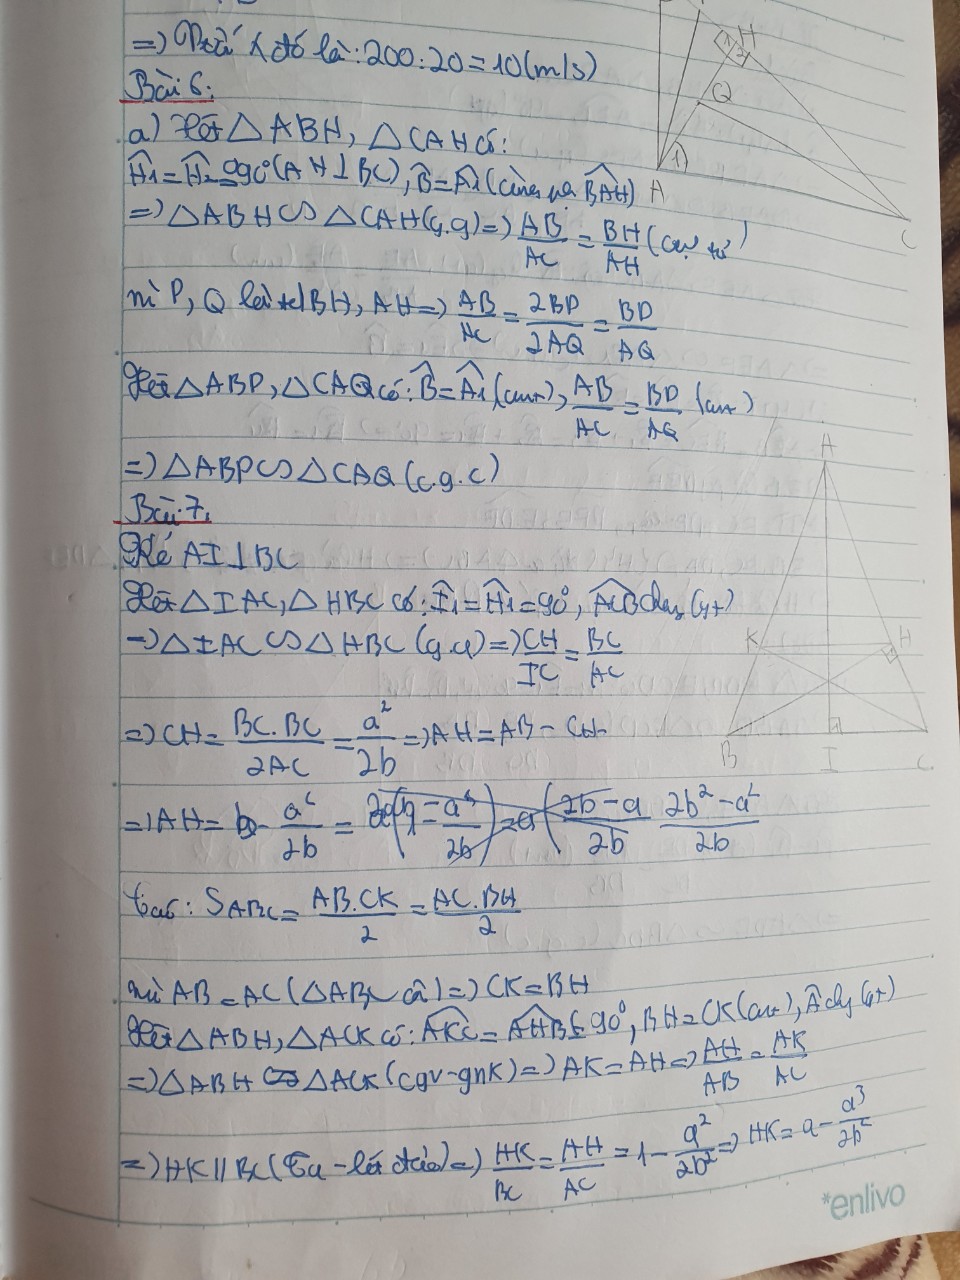 =) đó là: 200:20=10(m/s)
H
1 2
Q
Bài 6:
a) Xét △ABH, △CAH có:
Ĥ₁=Ĥ₂=90°(AH⊥BC), B̂=Â₁(cùng phụ BAH)
A
1
=) △ABH∽△CAH(g.g)=) AB/AC = BH/AH (cạnh tứ)
C
mà P, Q là tđ BH, AH=) AB/AC = 2BP/2AQ = BP/AQ
Xét △ABP, △CAQ có: B̂=Â₁(cmt), AB/AC = BP/AQ (cmt)
=) △ABP∽△CAQ (c.g.c)
A
Bài 7:
Kẻ AI⊥BC
Xét △IAC, △HBC có: Î₁=Ĥ₁=90°, ACB chung (gt)
K H
=) △IAC∽△HBC (g.g)=) CH/IC = BC/AC
=) CH= BC.BC/2AC = a²/2b =) AH=AB-CH
B I C
=) AH= b- a²/2b = 2b²-a²/2b
ta có: S ABC = AB.CK/2 = AC.BH/2
mà AB=AC(△ABC cân)=) CK=BH
Xét △ABH, △ACK có: AKC=AHB=90°, BH=CK(cmt), Â chung(gt)
=) △ABH △ACK(cgv-gnk)=) AK=AH=) AH/AB = AK/AC
=) HK//BC(Ta-lét đảo)=) HK/BC = AH/AC = 1- a²/2b² =) HK=a- a³/2b²
*enlivo